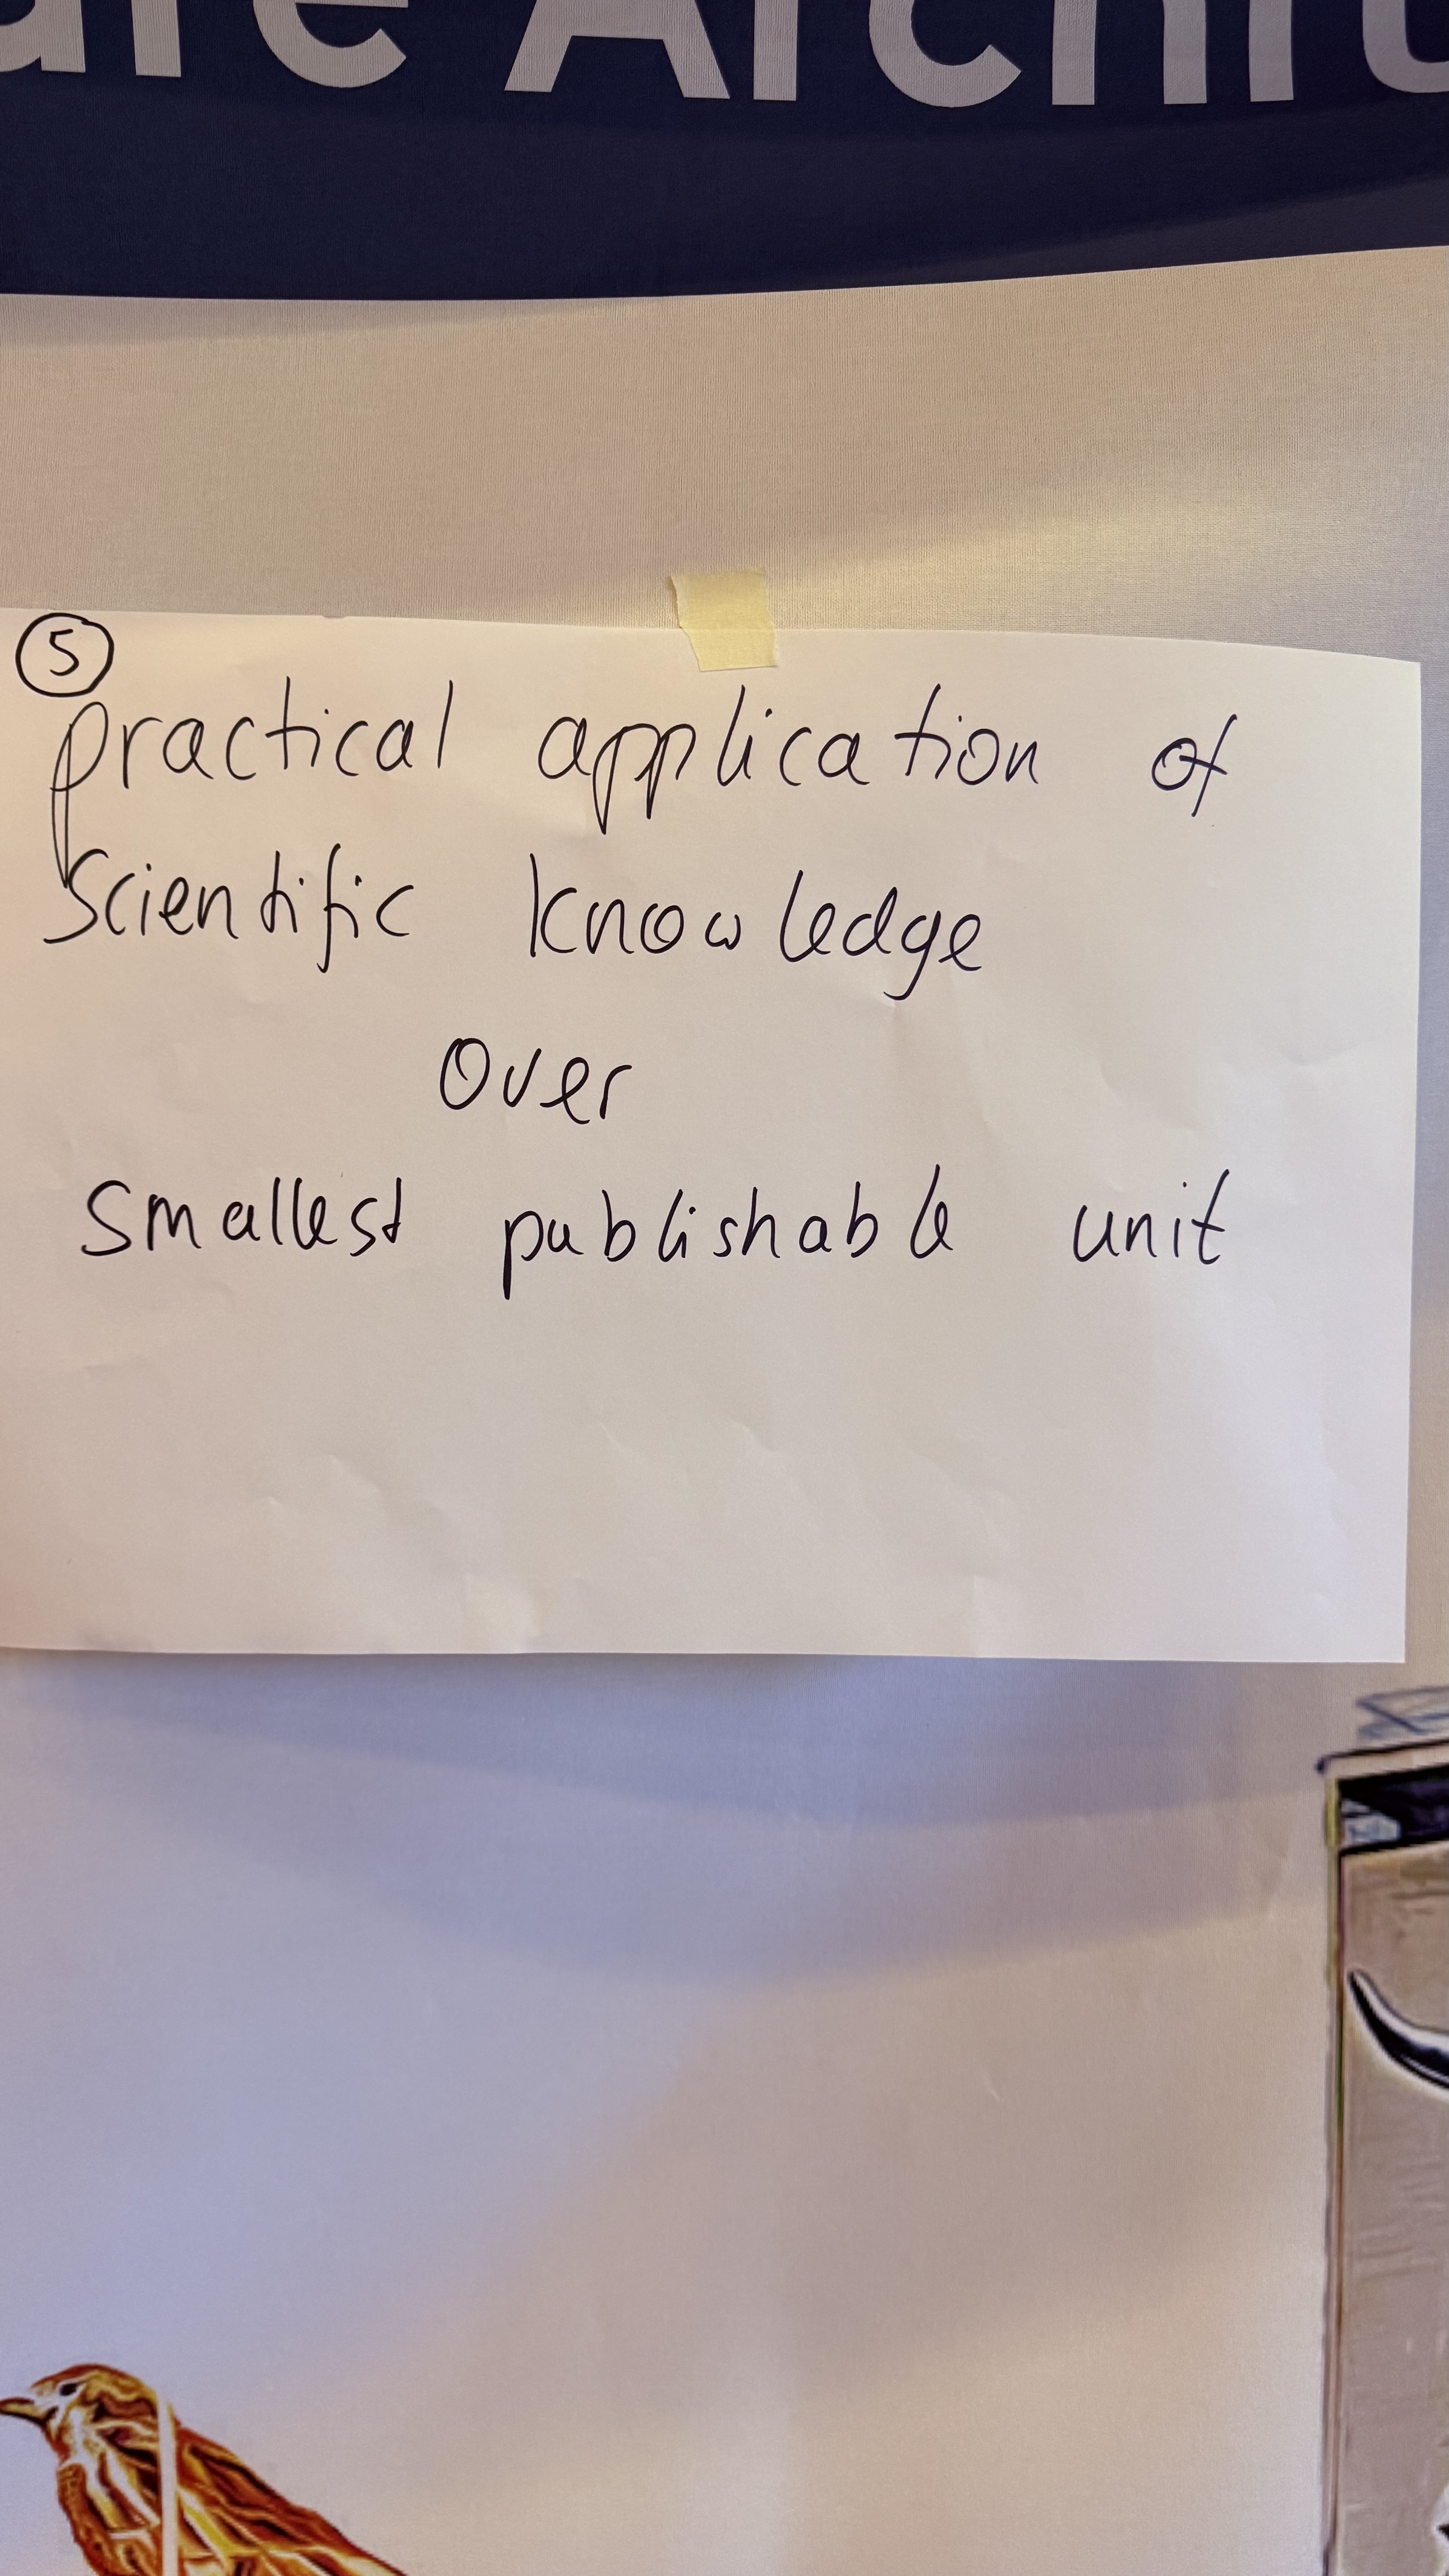 are Archit
5
practical application of
scientific knowledge
over
smallest publishable unit